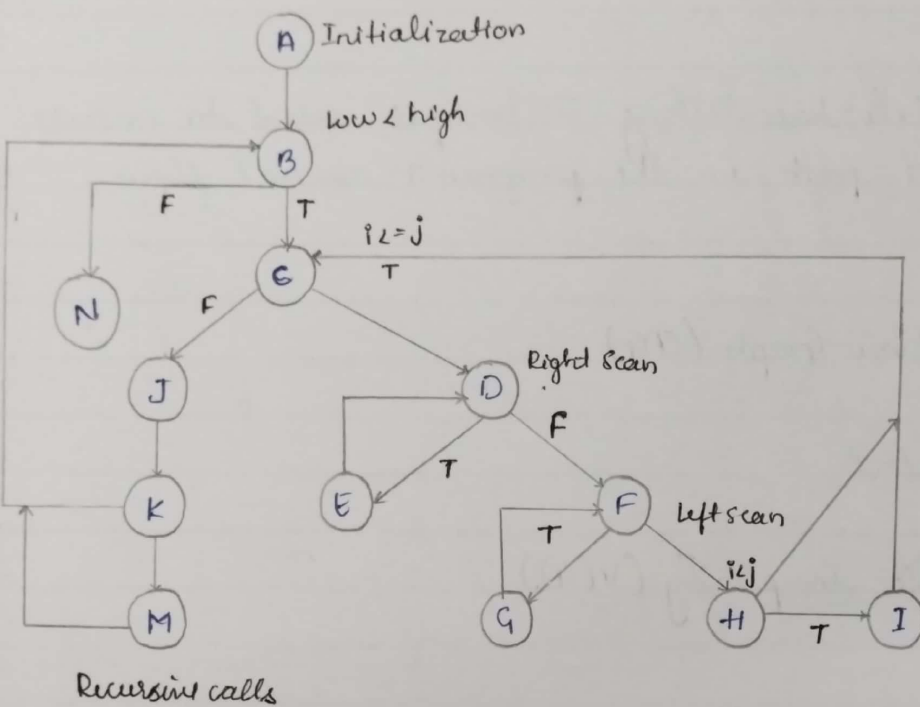 A Initialization
low < high
B
F T
i <= j
T
C
N
F
J
Right Scan
D
F
T
E
K
F
Left scan
T
i<j
G
H
T
I
M
Recursive calls